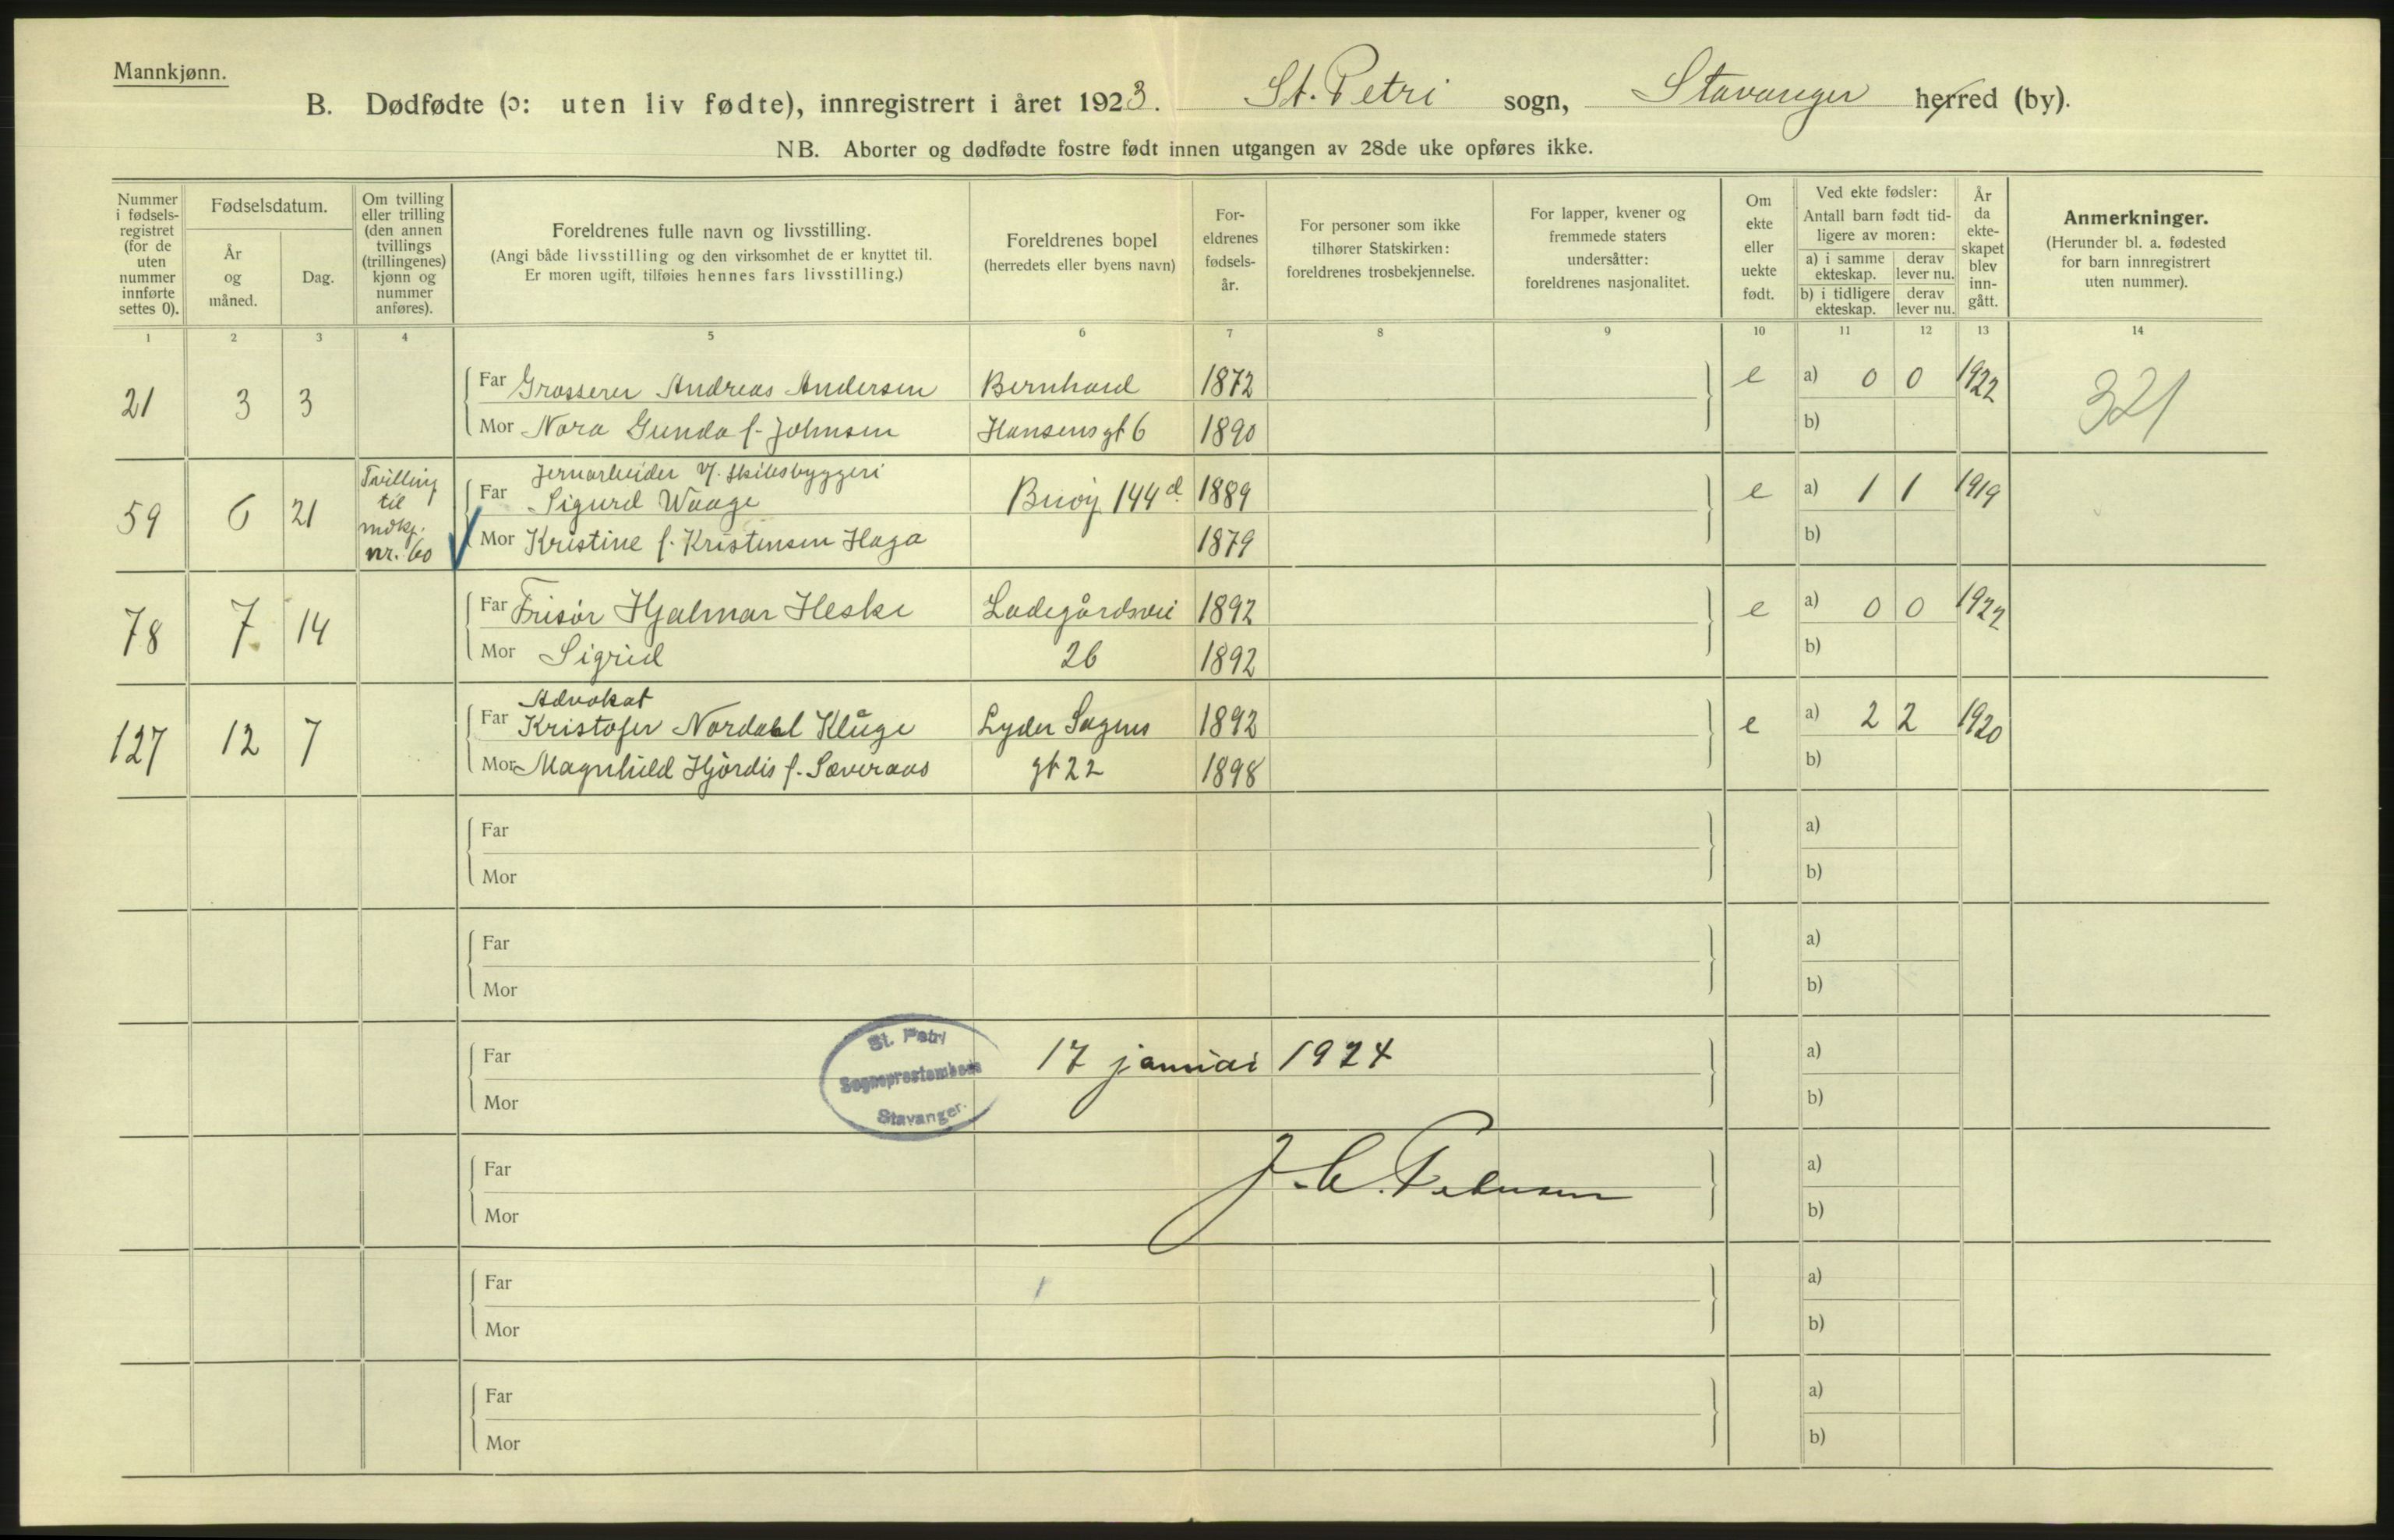 Mannkjønn.
B. Dødfødte (ɔ: uten liv fødte), innregistrert i året 1923. St. Petri sogn, Stavanger herred (by).
NB. Aborter og dødfødte fostre født innen utgangen av 28de uke opføres ikke.
Nummer
i fødsels-
registret
(for de
uten
nummer
innførte
settes 0).
Fødselsdatum.
År
og
måned.
Dag.
Om tvilling
eller trilling
(den annen
tvillings
(trillingenes)
kjønn og
nummer
anføres).
Foreldrenes fulle navn og livsstilling.
(Angi både livsstilling og den virksomhet de er knyttet til.
Er moren ugift, tilføies hennes fars livsstilling.)
Foreldrenes bopel
(herredets eller byens navn)
For-
eldrenes
fødsels-
år.
For personer som ikke
tilhører Statskirken:
foreldrenes trosbekjennelse.
For lapper, kvener og
fremmede staters
undersåtter:
foreldrenes nasjonalitet.
Om
ekte
eller
uekte
født.
Ved ekte fødsler:
Antall barn født tid-
ligere av moren:
a) i samme
ekteskap.
derav
lever nu.
b) i tidligere
ekteskap.
derav
lever nu.
År
da
ekte-
skapet
blev
inn-
gått.
Anmerkninger.
(Herunder bl. a. fødested
for barn innregistrert
uten nummer).
1 2 3 4 5 6 7 8 9 10 11 12 13 14
21 3 3 Far Grosserer Andreas Andersen Bernhard 1872 e a) 0 0 1922 321
Mor Nora Gunda f. Johnsen Hansens gt 6 1890 b)
59 6 21 Tvilling
til
mdkj.
nr. 60
Jernarbeider v/. skibsbyggeri
Far Sigurd Waage Buøy 144 d. 1889 e a) 1 1 1919
Mor Kristine f. Kristensen Haga 1879 b)
78 7 14 Far Frisør Hjalmar Heske Ladegårdsvei 1892 e a) 0 0 1922
Mor Sigrid 26 1892 b)
Advokat
127 12 7 Far Kristofer Nordahl Kluge Lyder Sagens 1892 e a) 2 2 1920
Mor Magnhild Hjørdis f. Sæveraas gt 22 1898 b)
Far a)
Mor b)
Far a)
Mor b)
St. Petri
Sogneprestembede
Stavanger.
Far 17 januar 1924 a)
Mor b)
Far J. C. Petersen a)
Mor b)
Far a)
Mor b)
Far a)
Mor b)